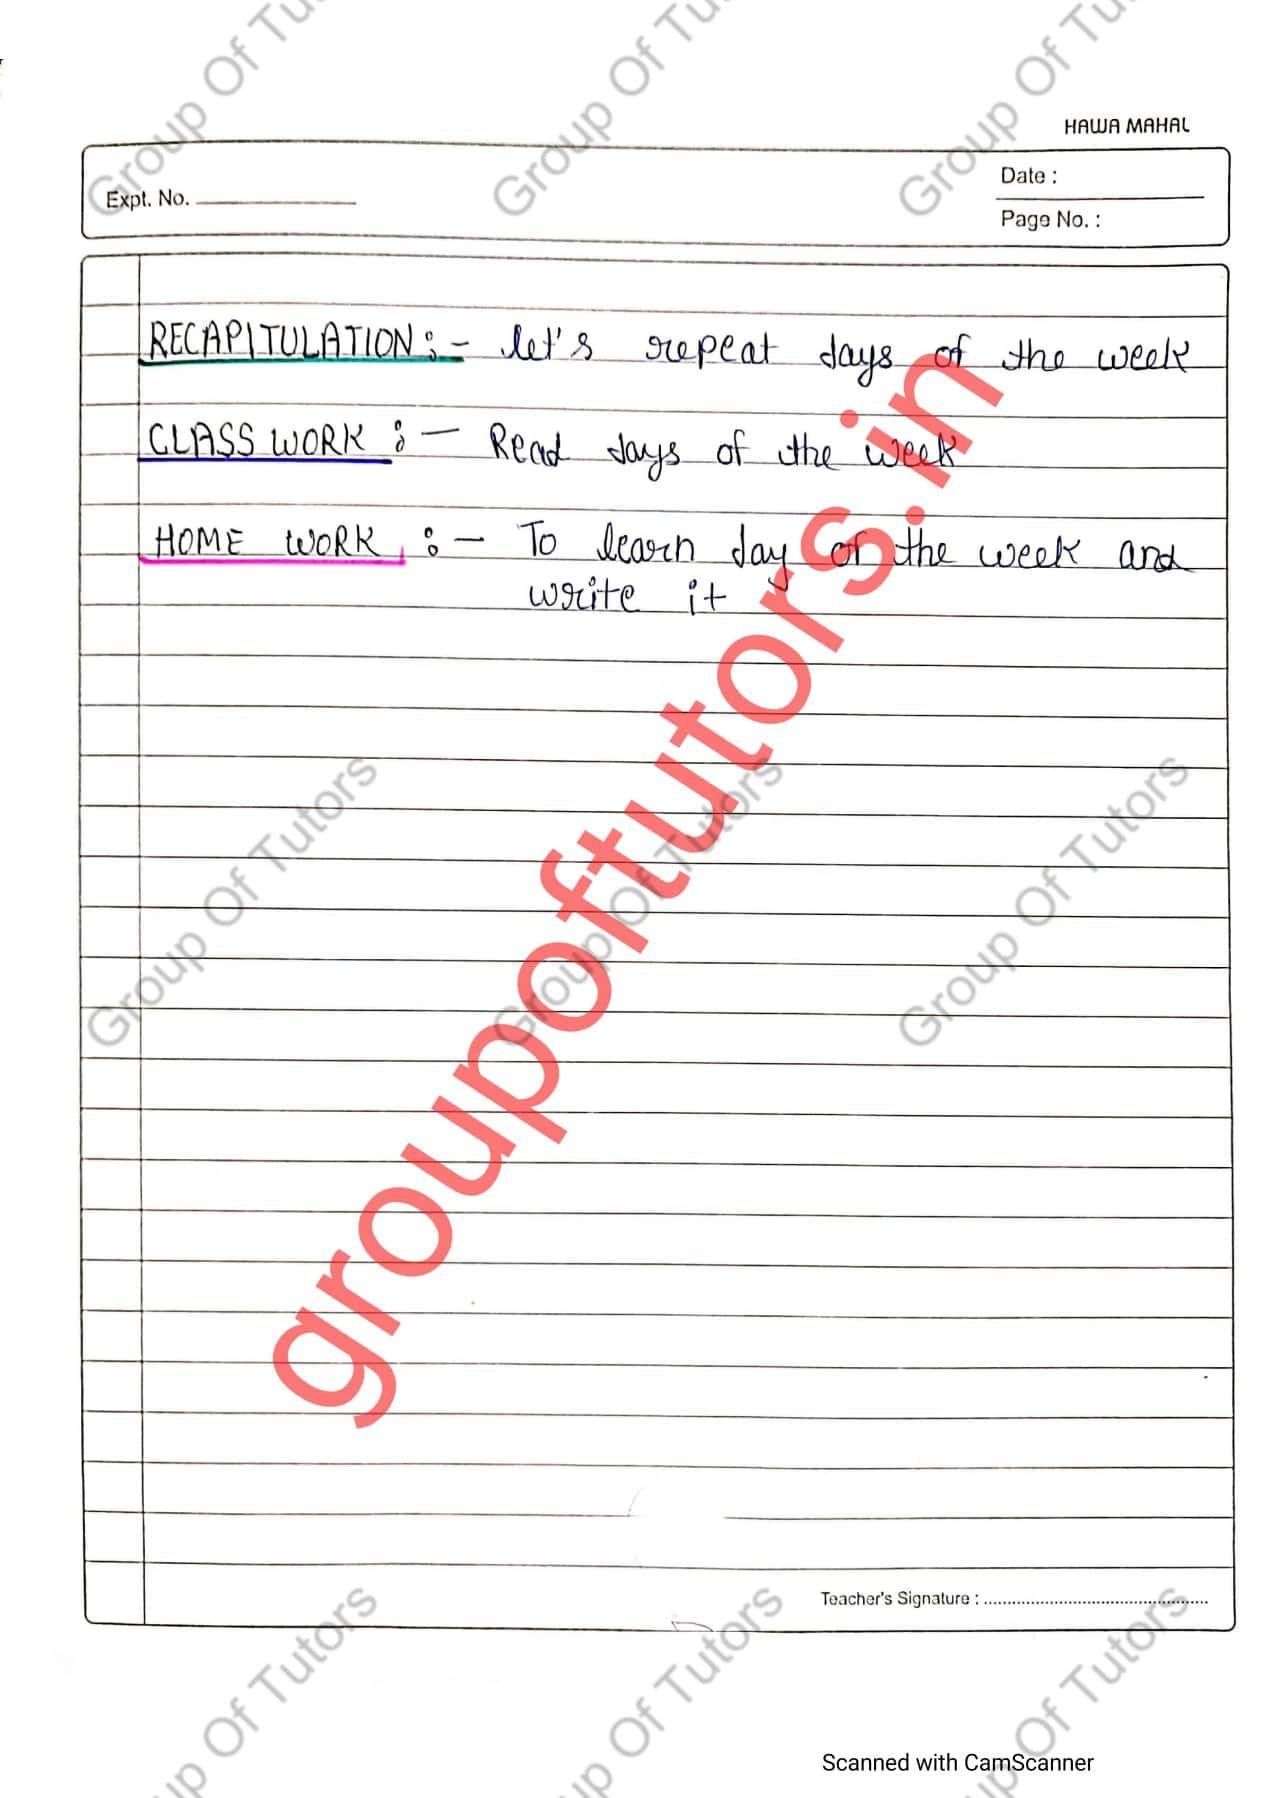 HAWA MAHAL
Expt. No.
Date :
Page No. :
RECAPITULATION :- let's repeat days of the week
CLASS WORK :- Read days of the week
HOME WORK :- To learn day of the week and
write it
Teacher's Signature :
Scanned with CamScanner
groupoftutors.in
Group Of Tu
Group Of Tu
Group Of Tu
Group Of Tutors
Group Of Tutors
Group Of Tutors
up Of Tutors
up Of Tutors
up Of Tutors